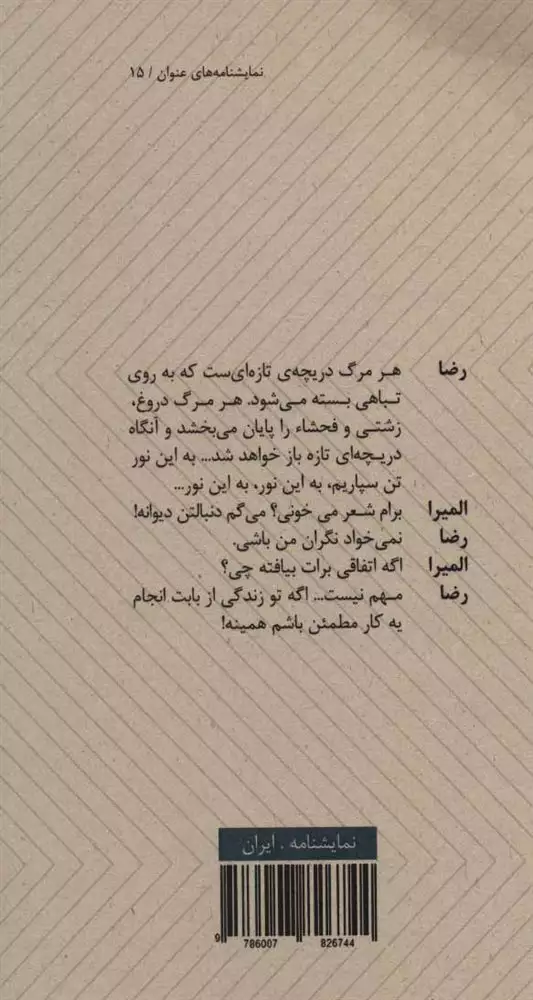 نمایشنامه‌های عنوان / ۱۵
رضا هر مرگ دریچه‌ی تازه‌ای‌ست که به روی
تباهی بسته می‌شود. هر مرگ دروغ،
زشتی و فحشاء را پایان می‌بخشد و آنگاه
دریچه‌ای تازه باز خواهد شد... به این نور
تن سپاریم، به این نور، به این نور...
المیرا برام شعر می خونی؟ می‌گم دنبالتن دیوانه!
رضا نمی‌خواد نگران من باشی.
المیرا اگه اتفاقی برات بیافته چی؟
رضا مهم نیست... اگه تو زندگی از بابت انجام
یه کار مطمئن باشم همینه!
نمایشنامه . ایران
9 786007 826744